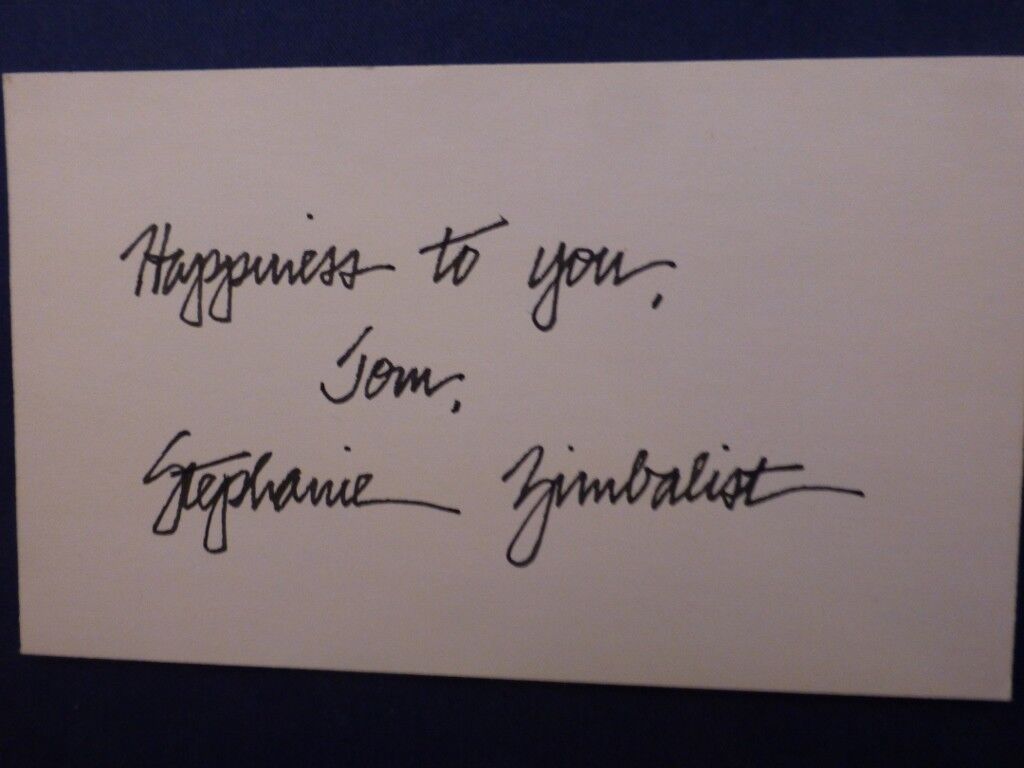 Happiness to you,
Tom,
Stephanie Zimbalist